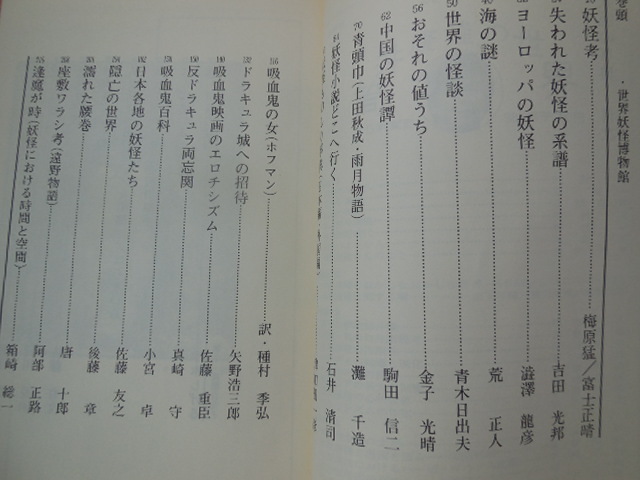 巻頭・世界妖怪博物館
妖怪考 梅原猛/富士正晴
失われた妖怪の系譜 吉田光邦
ヨーロッパの妖怪 澁澤龍彦
海の謎 荒正人
50 世界の怪談 青木日出夫
56 おそれの値うち 金子光晴
62 中国の妖怪譚 駒田信二
70 青頭巾(上田秋成・雨月物語) 灘千造
妖怪小説どこへ行く 石井清司
吸血鬼の女(ホフマン) 訳・種村季弘
ドラキュラ城への招待 矢野浩三郎
吸血鬼映画のエロチシズム 佐藤重臣
反ドラキュラ両忘関 真崎守
吸血鬼百科 小宮卓
日本各地の妖怪たち 佐藤友之
隠亡の世界 後藤章
濡れた腰巻 唐十郎
座敷ワラシ考(遠野物語) 阿部正路
逢魔が時(妖怪における時間と空間) 箱崎総一